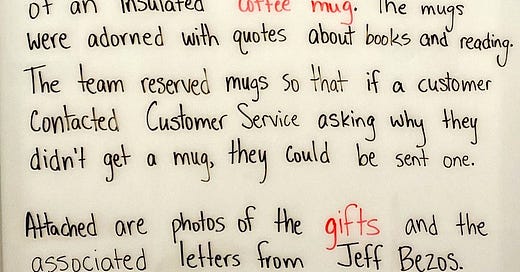 of an insulated coffee mug. The mugs
were adorned with quotes about books and reading.
The team reserved mugs so that if a customer
contacted Customer Service asking why they
didn't get a mug, they could be sent one.
Attached are photos of the gifts and the
associated letters from Jeff Bezos.